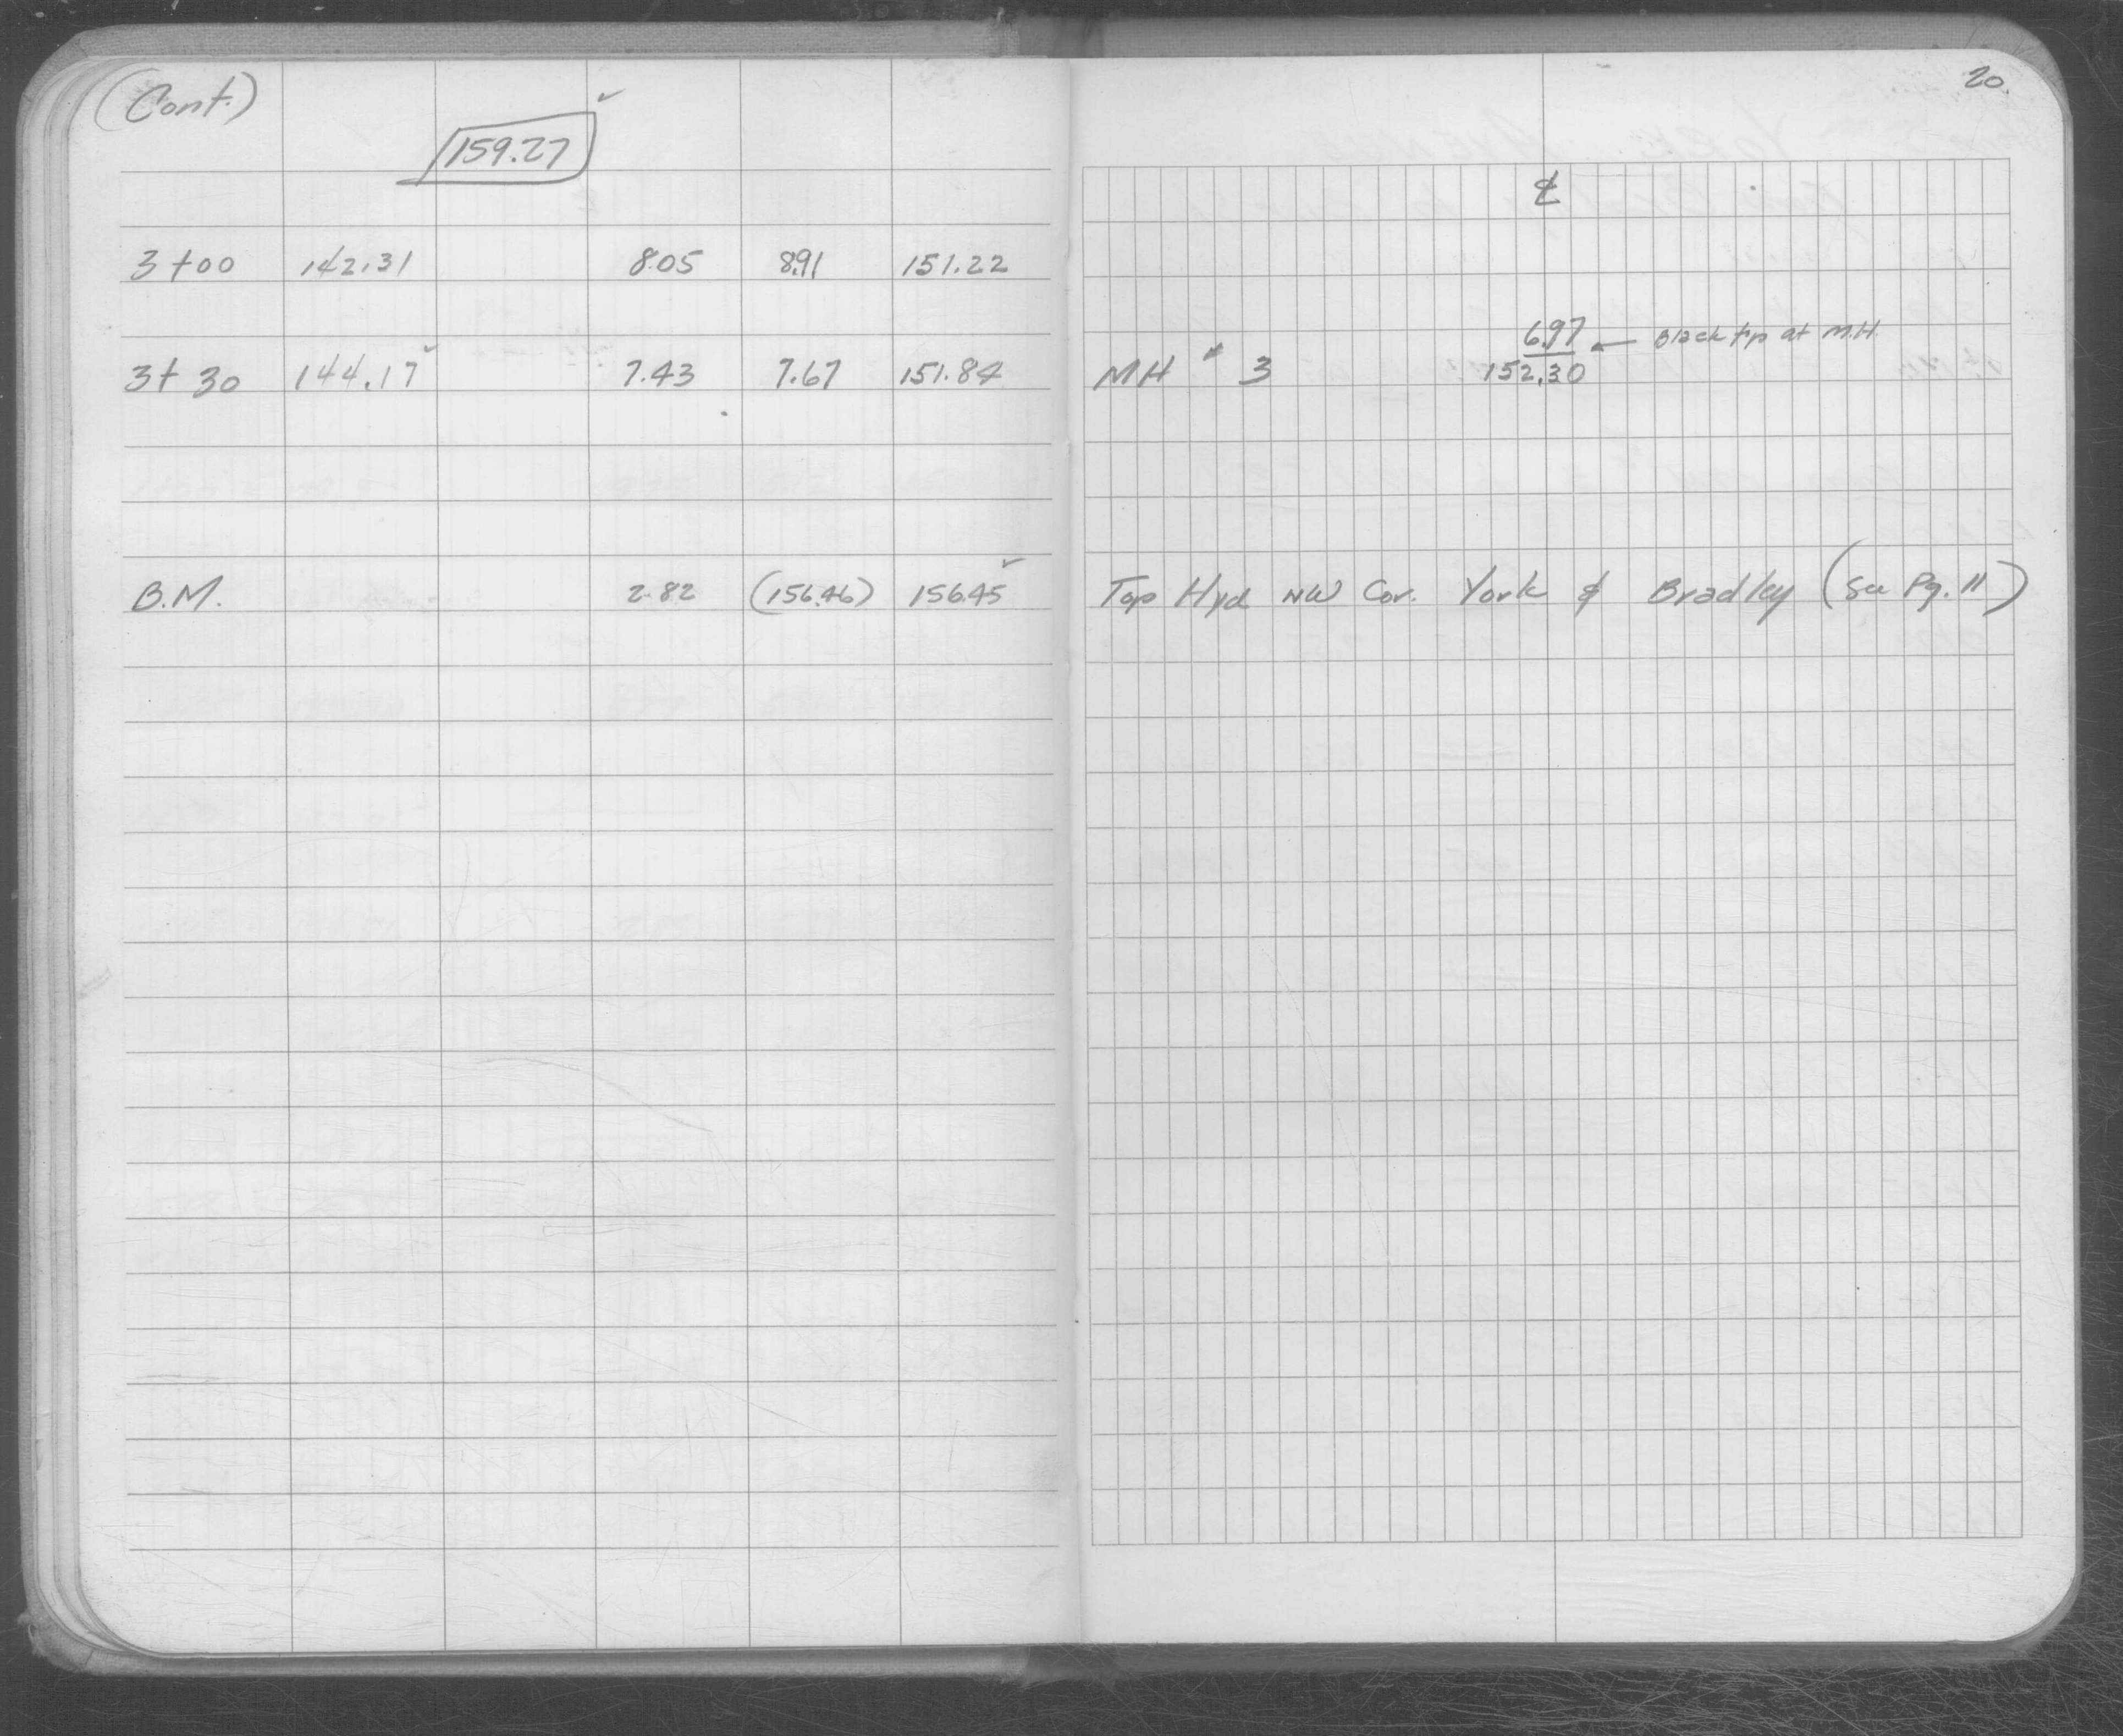 (Cont.)
159.27
3+00 142.31 8.05 8.91 151.22
3+30 144.17 7.43 7.67 151.84
B.M. 2.82 (156.46) 156.45
20.
℄
6.97 ← Black top at M.H.
MH # 3 152.30
Top Hyd NW Cor. York & Bradley (See Pg. 11)